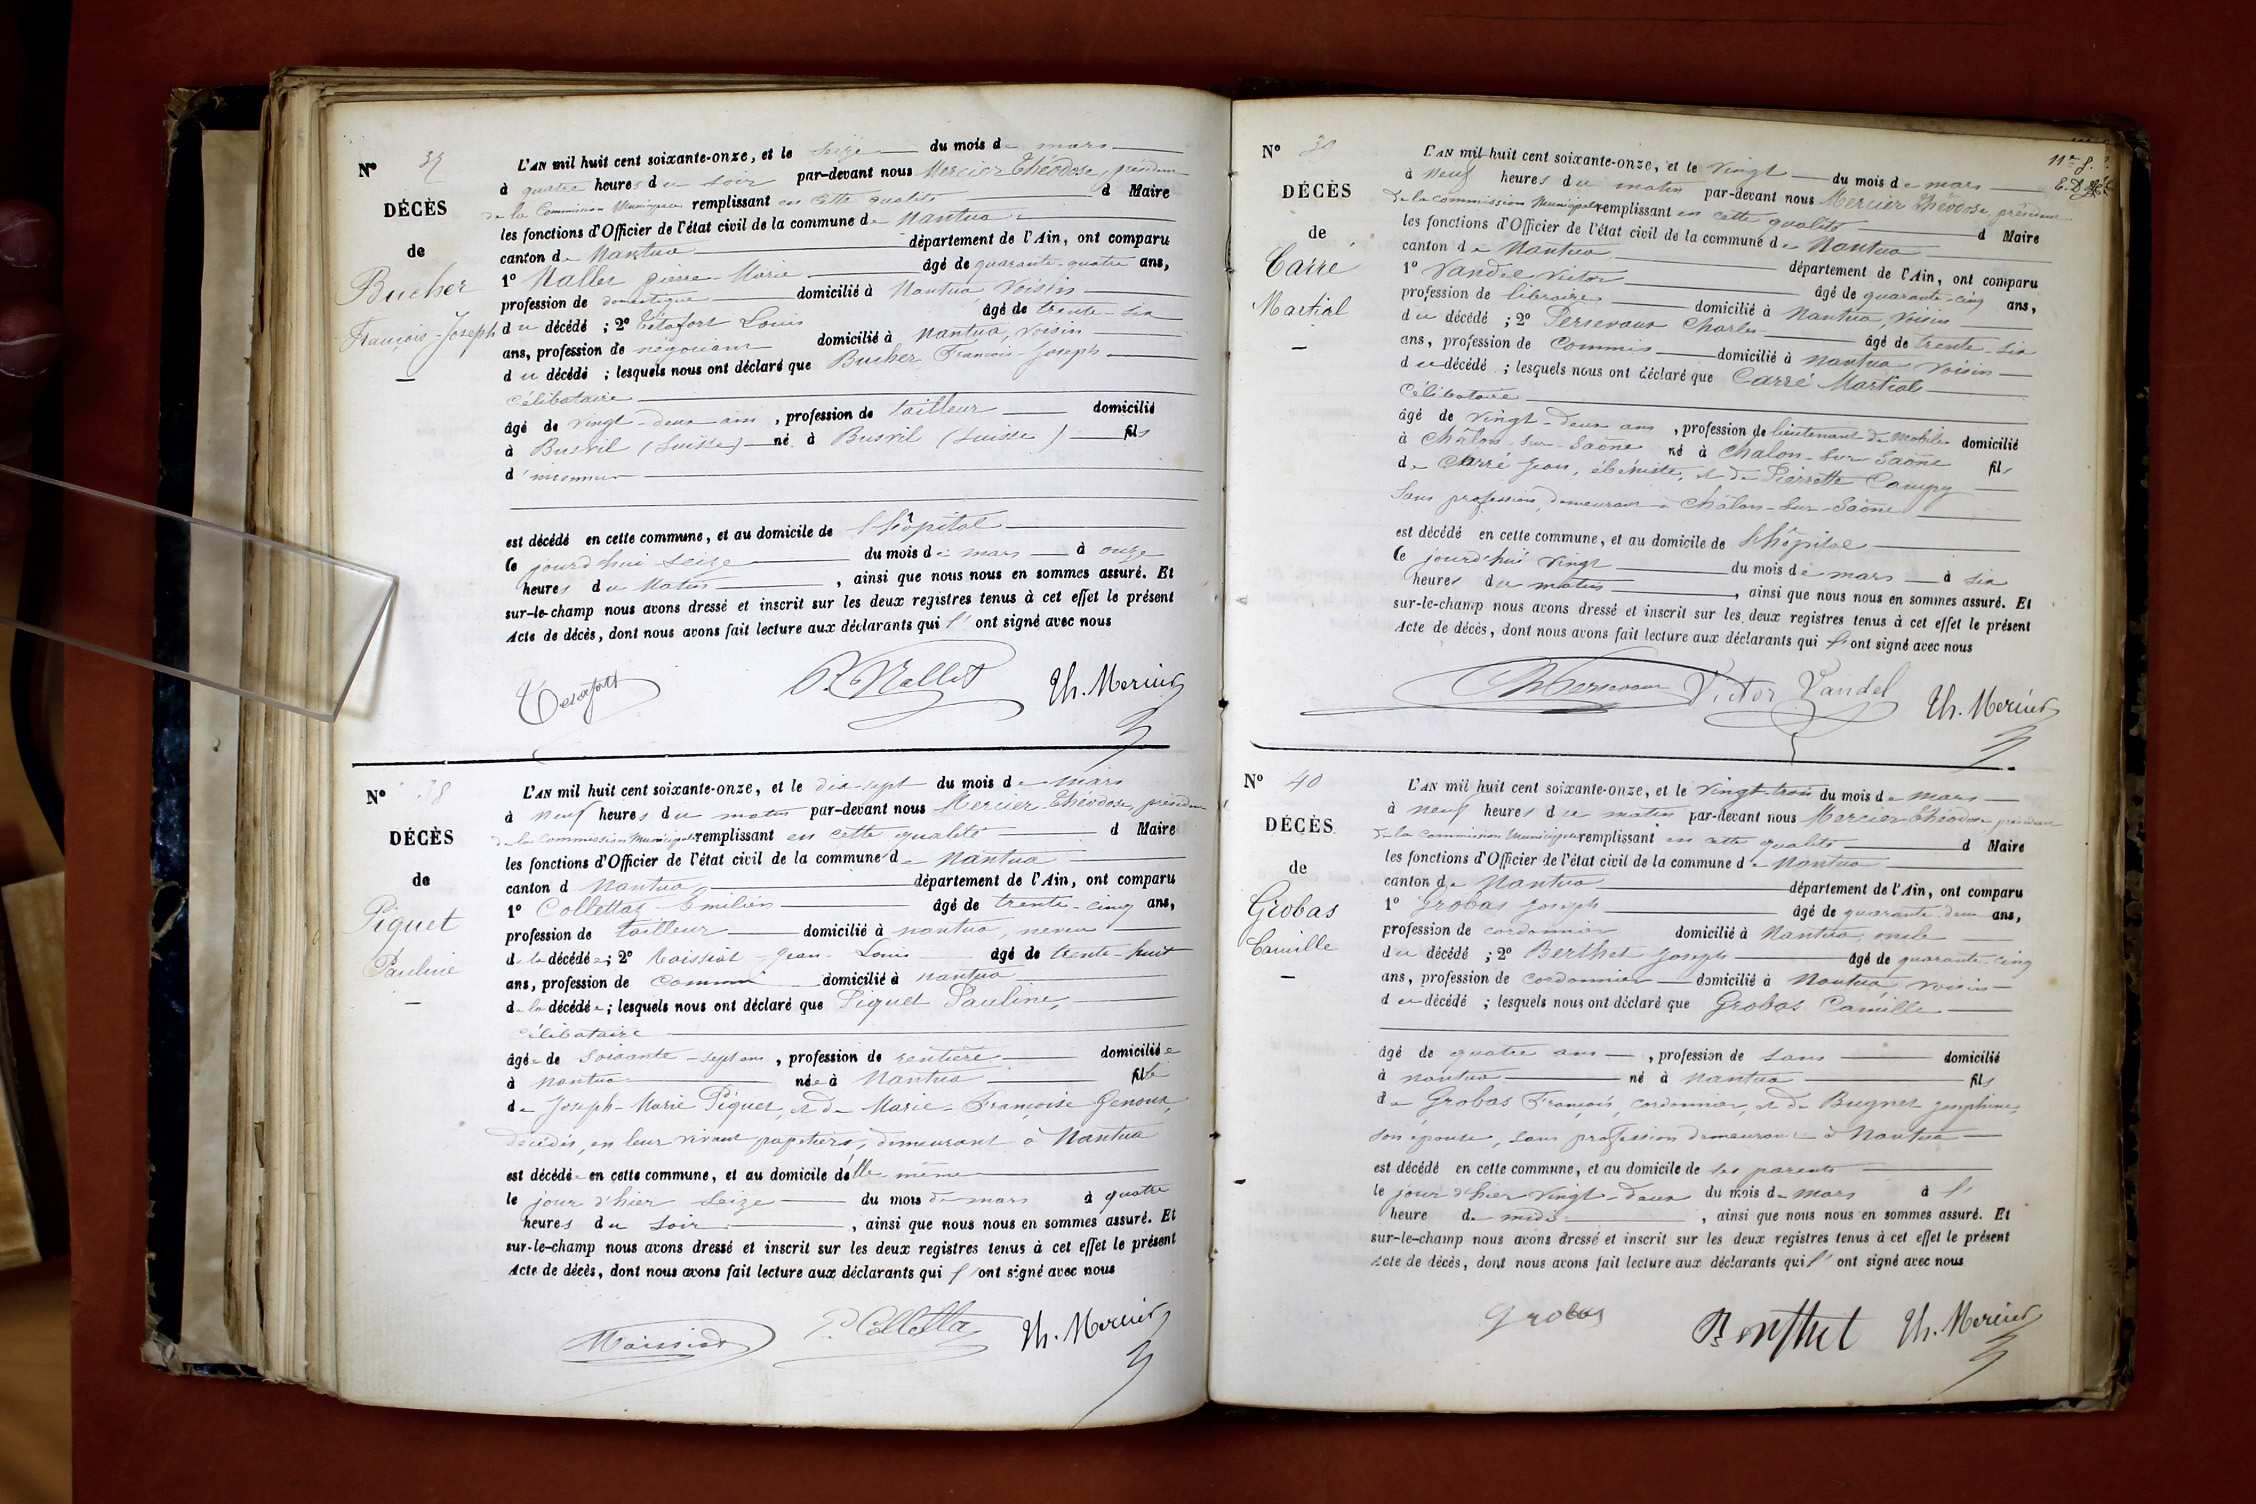 N° 37
DÉCÈS
de
Bucher
François-Joseph
L'AN mil huit cent soixante-onze, et le seize du mois de mars
à quatre heures du soir par-devant nous Mercier Théodose, président
de la Commission Municipale remplissant en cette qualité d Maire
les fonctions d'Officier de l'état civil de la commune de Nantua
canton de Nantua département de l'Ain, ont comparu
1° Nallet pierre-Marie âgé de quarante-quatre ans,
profession de domestique domicilié à Nantua, voisin
du décédé ; 2° Tétafort Louis âgé de trente-six
ans, profession de négociant domicilié à Nantua, voisin
du décédé ; lesquels nous ont déclaré que Bucher François-Joseph
célibataire
âgé de vingt-deux ans, profession de tailleur domicilié
à Busvil (Suisse) né à Busvil (Suisse) fils
d'inconnu
est décédé en cette commune, et au domicile de l'hôpital
le jourd'hui seize du mois de mars à onze
heures du matin, ainsi que nous nous en sommes assuré. Et
sur-le-champ nous avons dressé et inscrit sur les deux registres tenus à cet effet le présent
Acte de décès, dont nous avons fait lecture aux déclarants qui l'ont signé avec nous
P. Nallet Th. Mercier
N° 38
DÉCÈS
de
Piquet
Pauline
L'AN mil huit cent soixante-onze, et le dix-sept du mois de mars
à neuf heures du matin par-devant nous Mercier Théodose, président
de la Commission Municipale remplissant en cette qualité d Maire
les fonctions d'Officier de l'état civil de la commune de Nantua
canton d Nantua département de l'Ain, ont comparu
1° Collettaz Emilien âgé de trente-cinq ans,
profession de tailleur domicilié à nantua, neveu
de la décédée ; 2° Moissiat Jean-Louis âgé de trente-huit
ans, profession de commis domicilié à nantua
de la décédée ; lesquels nous ont déclaré que Piquet Pauline,
célibataire
âgée de soixante-sept ans, profession de rentière domiciliée
à nantua née à Nantua fille
de Joseph-Marie Piquet, et de Marie-Françoise Genoux,
décédés, en leur vivant papetiers, demeurant à Nantua
est décédée en cette commune, et au domicile d'elle-même
le jour d'hier seize du mois de mars à quatre
heures du soir, ainsi que nous nous en sommes assuré. Et
sur-le-champ nous avons dressé et inscrit sur les deux registres tenus à cet effet le présent
Acte de décès, dont nous avons fait lecture aux déclarants qui l'ont signé avec nous
Moissiat Th. Mercier
N° 39
DÉCÈS
de
Carré
Martial
L'AN mil huit cent soixante-onze, et le vingt du mois de mars
à neuf heures du matin par-devant nous Mercier Théodose, président
de la commission Municipale remplissant en cette qualité d Maire
les fonctions d'Officier de l'état civil de la commune de Nantua
canton de Nantua département de l'Ain, ont comparu
1° Vandel Victor âgé de quarante-cinq ans,
profession de libraire domicilié à Nantua, voisin
du décédé ; 2° Persevaux Charles âgé de trente-six
ans, profession de commis domicilié à nantua, voisin
du décédé ; lesquels nous ont déclaré que Carré Martial
Célibataire
âgé de vingt-deux ans, profession de lieutenant de Mobile domicilié
à Châlon-sur-Saône né à Chalon-sur-Saône fils
de Carré Jean, ébéniste, et de Pierrette
sans profession, demeurant à Châlon-sur-Saône
est décédé en cette commune, et au domicile de l'hôpital
le jourd'hui vingt du mois de mars à six
heures du matin, ainsi que nous nous en sommes assuré. Et
sur-le-champ nous avons dressé et inscrit sur les deux registres tenus à cet effet le présent
Acte de décès, dont nous avons fait lecture aux déclarants qui l'ont signé avec nous
Victor Vandel Th. Mercier
N° 40
DÉCÈS
de
Grobas
Camille
L'AN mil huit cent soixante-onze, et le vingt-trois du mois de mars
à neuf heures du matin par-devant nous Mercier Théodose, président
de la commission Municipale remplissant en cette qualité d Maire
les fonctions d'Officier de l'état civil de la commune de Nantua
canton de Nantua département de l'Ain, ont comparu
1° Grobas Joseph âgé de quarante-deux ans,
profession de cordonnier domicilié à Nantua, oncle
du décédé ; 2° Berthet Joseph âgé de quarante-cinq
ans, profession de cordonnier domicilié à Nantua voisin
du décédé ; lesquels nous ont déclaré que Grobas Camille
âgé de quatre ans, profession de sans domicilié
à nantua né à nantua fils
de Grobas François, cordonnier, et de Bugnet Joséphine,
son épouse, sans profession demeurant à Nantua
est décédé en cette commune, et au domicile de ses parents
le jour d'hier vingt-deux du mois de mars à l'
heure de midi, ainsi que nous nous en sommes assuré. Et
sur-le-champ nous avons dressé et inscrit sur les deux registres tenus à cet effet le présent
Acte de décès, dont nous avons fait lecture aux déclarants qui l'ont signé avec nous
Grobas Berthet Th. Mercier